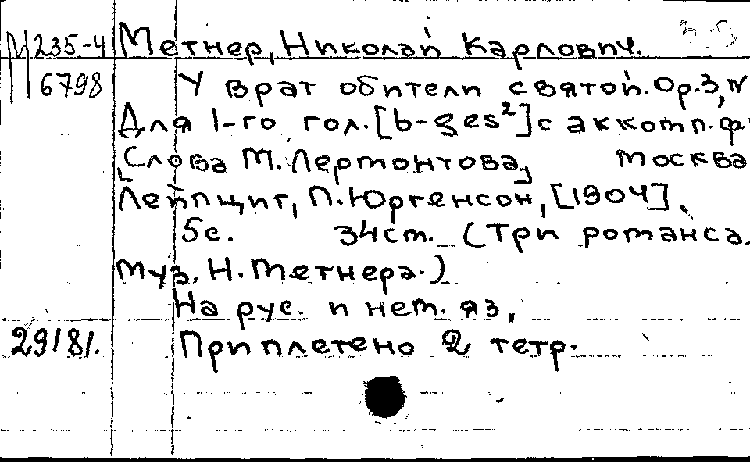 М 235-4 Метнер, Николай Карлович.
6798 У врат обители святой. Ор.3, №
Для 1-го гол. [b-ges²] с аккомп. ф
[Слова М. Лермонтова] Москва
Лейпциг, П. Юргенсон, [1904].
5с. 34см. (Три романса.
муз. Н. Метнера.)
На рус. и нем. яз,
29181. Приплетено 2 тетр.